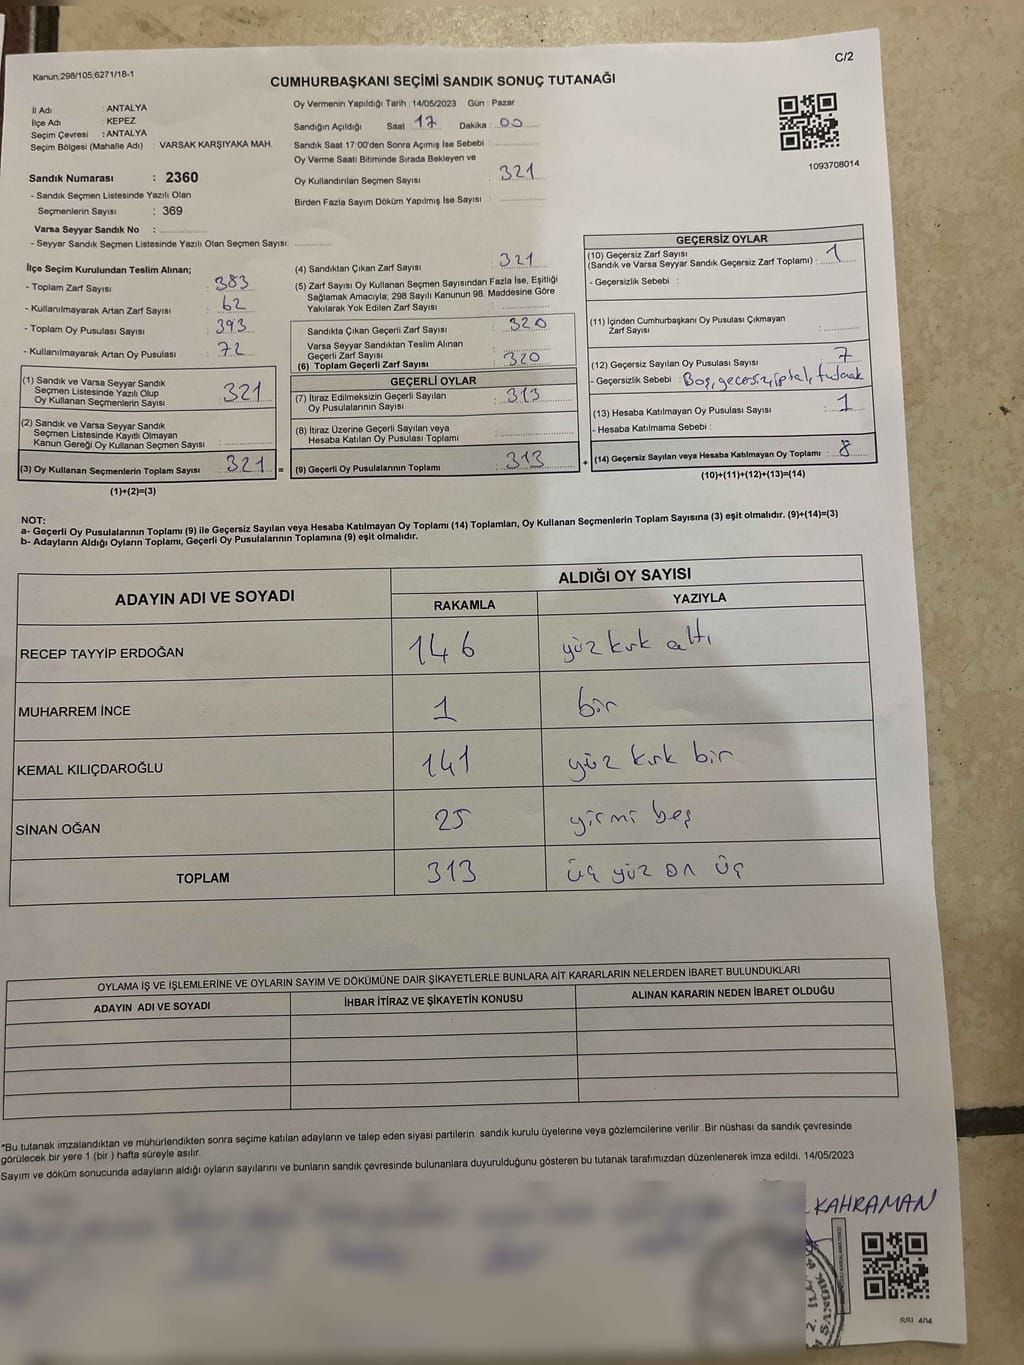 Kanun;298/105,6271/18-1
C/2
CUMHURBAŞKANI SEÇİMİ SANDIK SONUÇ TUTANAĞI
İl Adı : ANTALYA
İlçe Adı : KEPEZ
Seçim Çevresi : ANTALYA
Seçim Bölgesi (Mahalle Adı) : VARSAK KARŞIYAKA MAH.
Sandık Numarası : 2360
- Sandık Seçmen Listesinde Yazılı Olan
Seçmenlerin Sayısı : 369
Varsa Seyyar Sandık No :
- Seyyar Sandık Seçmen Listesinde Yazılı Olan Seçmen Sayısı:
Oy Vermenin Yapıldığı Tarih : 14/05/2023 Gün : Pazar
Sandığın Açıldığı Saat : 17 Dakika : 00
Sandık Saat 17:00'den Sonra Açımış İse Sebebi :
Oy Verme Saati Bitiminde Sırada Bekleyen ve
Oy Kullandırılan Seçmen Sayısı : 321
Birden Fazla Sayım Döküm Yapılmış İse Sayısı :
1093708014
İlçe Seçim Kurulundan Teslim Alınan;
- Toplam Zarf Sayısı : 383
- Kullanılmayarak Artan Zarf Sayısı : 62
- Toplam Oy Pusulası Sayısı : 393
- Kullanılmayarak Artan Oy Pusulası : 72
(1) Sandık ve Varsa Seyyar Sandık
Seçmen Listesinde Yazılı Olup
Oy Kullanan Seçmenlerin Sayısı : 321
(2) Sandık ve Varsa Seyyar Sandık
Seçmen Listesinde Kayıtlı Olmayan
Kanun Gereği Oy Kullanan Seçmen Sayısı :
(3) Oy Kullanan Seçmenlerin Toplam Sayısı : 321 =
(1)+(2)=(3)
(4) Sandıktan Çıkan Zarf Sayısı : 321
(5) Zarf Sayısı Oy Kullanan Seçmen Sayısından Fazla İse, Eşitliği
Sağlamak Amacıyla; 298 Sayılı Kanunun 98. Maddesine Göre
Yakılarak Yok Edilen Zarf Sayısı :
Sandıkta Çıkan Geçerli Zarf Sayısı : 320
Varsa Seyyar Sandıktan Teslim Alınan
Geçerli Zarf Sayısı :
(6) Toplam Geçerli Zarf Sayısı : 320
GEÇERLİ OYLAR
(7) İtiraz Edilmeksizin Geçerli Sayılan
Oy Pusulalarının Sayısı : 313
(8) İtiraz Üzerine Geçerli Sayılan veya
Hesaba Katılan Oy Pusulası Toplamı :
(9) Geçerli Oy Pusulalarının Toplamı : 313 +
GEÇERSİZ OYLAR
(10) Geçersiz Zarf Sayısı
(Sandık ve Varsa Seyyar Sandık Geçersiz Zarf Toplamı) : 1
- Geçersizlik Sebebi :
(11) İçinden Cumhurbaşkanı Oy Pusulası Çıkmayan
Zarf Sayısı :
(12) Geçersiz Sayılan Oy Pusulası Sayısı : 7
- Geçersizlik Sebebi : Boş, geçersiz, iptal,
(13) Hesaba Katılmayan Oy Pusulası Sayısı : 1
- Hesaba Katılmama Sebebi :
(14) Geçersiz Sayılan veya Hesaba Katılmayan Oy Toplamı : 8
(10)+(11)+(12)+(13)=(14)
NOT:
a- Geçerli Oy Pusulalarının Toplamı (9) ile Geçersiz Sayılan veya Hesaba Katılmayan Oy Toplamı (14) Toplamları, Oy Kullanan Seçmenlerin Toplam Sayısına (3) eşit olmalıdır. (9)+(14)=(3)
b- Adayların Aldığı Oyların Toplamı, Geçerli Oy Pusulalarının Toplamına (9) eşit olmalıdır.
ADAYIN ADI VE SOYADI
ALDIĞI OY SAYISI
RAKAMLA YAZIYLA
RECEP TAYYİP ERDOĞAN 146 yüz kırk altı
MUHARREM İNCE 1 bir
KEMAL KILIÇDAROĞLU 141 yüz kırk bir
SİNAN OĞAN 25 yirmi beş
TOPLAM 313 üç yüz on üç
OYLAMA İŞ VE İŞLEMLERİNE VE OYLARIN SAYIM VE DÖKÜMÜNE DAİR ŞİKAYETLERLE BUNLARA AİT KARARLARIN NELERDEN İBARET BULUNDUKLARI
ADAYIN ADI VE SOYADI İHBAR İTİRAZ VE ŞİKAYETİN KONUSU ALINAN KARARIN NEDEN İBARET OLDUĞU
*Bu tutanak imzalandıktan ve mühürlendikten sonra seçime katılan adayların ve talep eden siyasi partilerin sandık kurulu üyelerine veya gözlemcilerine verilir .Bir nüshası da sandık çevresinde
görülecek bir yere 1 (bir ) hafta süreyle asılır.
Sayım ve döküm sonucunda adayların aldığı oyların sayılarını ve bunların sandık çevresinde bulunanlara duyurulduğunu gösteren bu tutanak tarafımızdan düzenlenerek imza edildi. 14/05/2023
KAHRAMAN
2. İLÇE
SANDIK